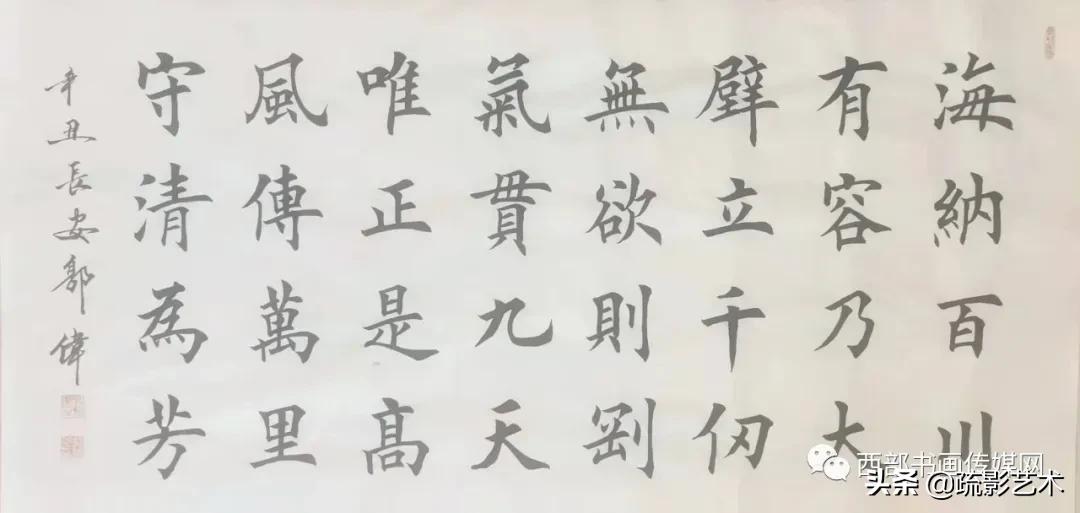 海納百川
有容乃大
壁立千仞
無欲則剛
氣貫九天
唯正是高
風傳萬里
守清為芳
辛丑長安郭偉
西部书画传媒网
头条@疏影艺术